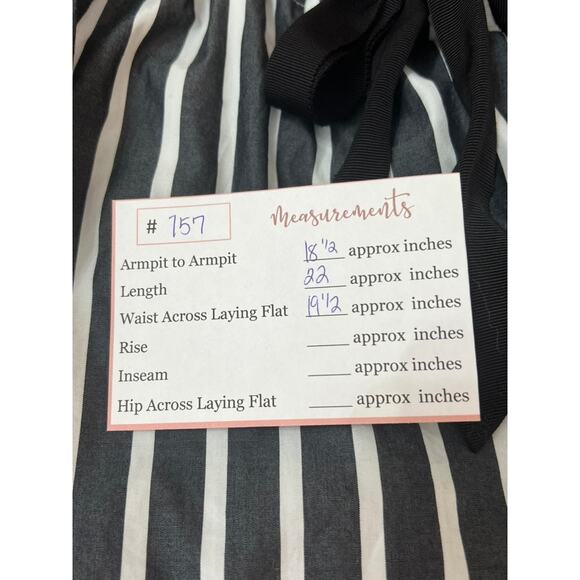 # 757
Measurements
Armpit to Armpit 18 1/2 approx inches
Length 22 approx inches
Waist Across Laying Flat 19 1/2 approx inches
Rise _____ approx inches
Inseam _____ approx inches
Hip Across Laying Flat _____ approx inches